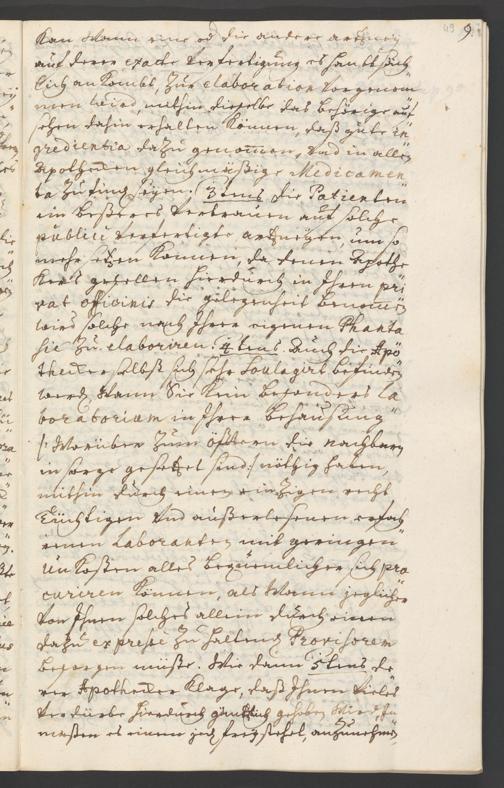 49 9.
kan wann eine od die andere artzneÿ
auf derer exacte verfertigung es haubtsäch
lich ankombt, zur elaboration vorgenom
men wird, mithin dieselbe das behörige auf
sehen dahin erhalten können, daß gute in
gredientia dazu genommen, und in allen
Apotheken gleichmäßige Medicamen
ta zu find seÿen. 3tens die Patienten
ein beßeres vertrauen auf solche
publice verfertigte artzneÿen, um so
mehr setzen können, da denen Apothe
kers gesellen hierdurch in Ihren pri
vat officinis die gelegenheit benomen
wird solche nach Ihrer eigenen Phanta
sie zu elaboriren. 4tens Auch die Apo
theker selbst sich sehr soulagirt befinden
werd, wann Sie kein besonders la
boratorium in Ihrer behausung
/: worüber zum öfftern die nachbarn
in sorge gesetzet sind :/ nöthig haben,
mithin durch einen einzigen recht
tüchtigen und außerlesenen erfah
renen Laboranten mit geringen
unkosten alles bequemlicher sich pro
curiren können, als wann jeglicher
von Ihnen solches allein durch einen
dazu expresse zu haltend Provisorem
besorgen müßte. Wie dann 5tens de
rer Apotheker Klage, daß Ihnen vieles
verdürbe hierdurch gäntzlich gehoben
maßen es einem jed freÿ stehet, anzunehmen,